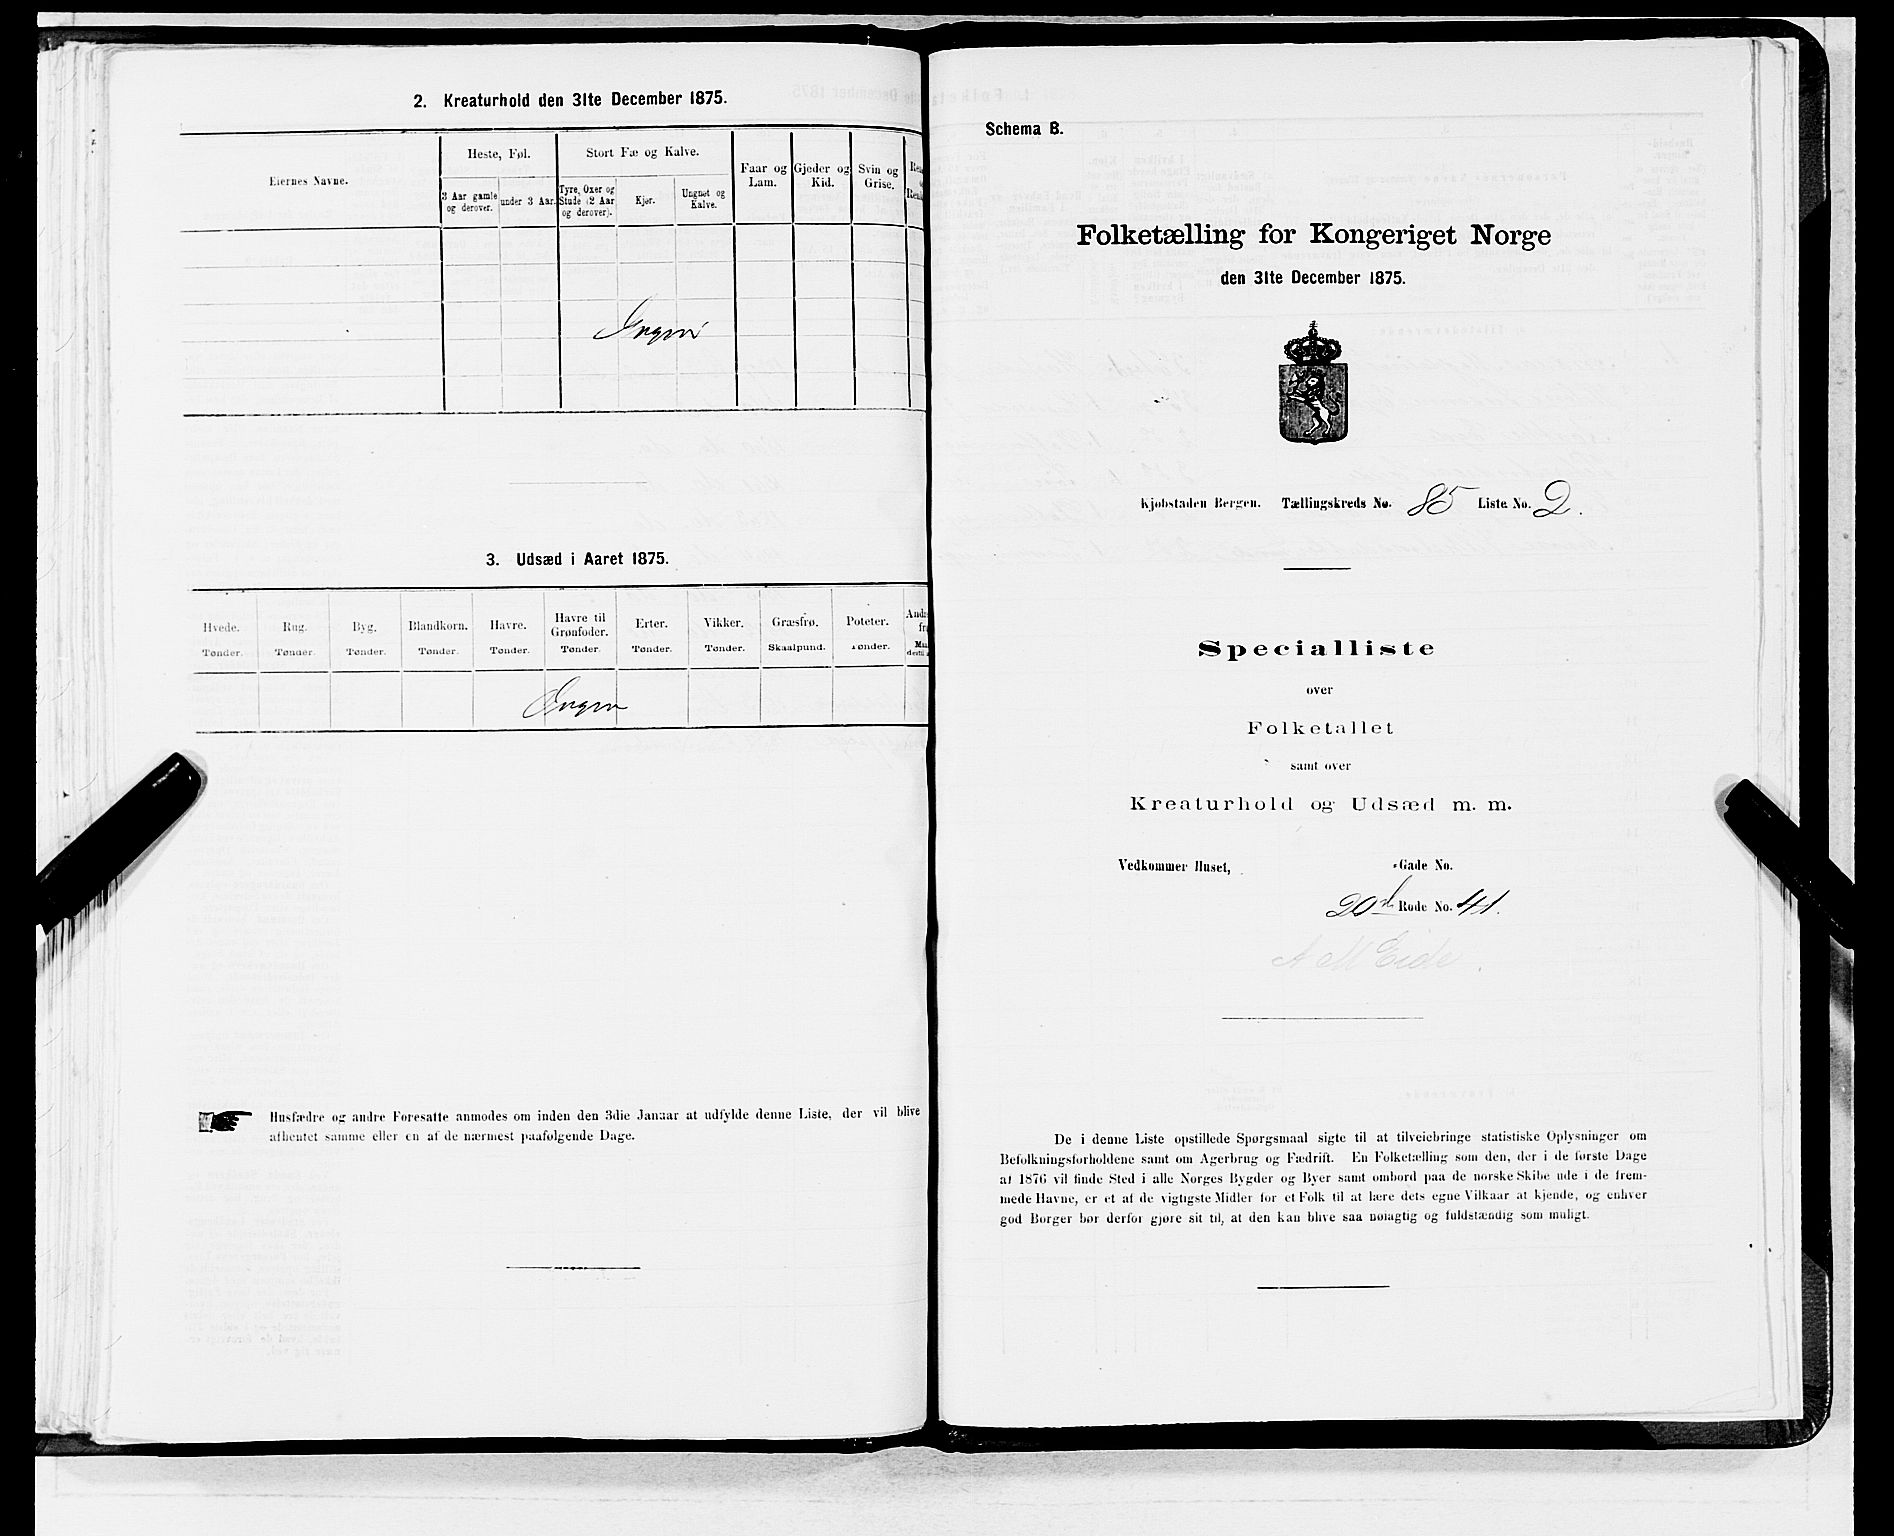 2. Kreaturhold den 31te December 1875.
Eiernes Navne.
Heste, Føl.
Stort Fæ og Kalve.
Faar og Lam.
Gjeder og Kid.
Svin og Grise.
3 Aar gamle og derover.
under 3 Aar.
Tyre, Oxer og Stude (2 Aar og derover).
Kjør.
Ungnøt og Kalve.
Ingen
3. Udsæd i Aaret 1875.
Hvede. Rug. Byg. Blandkorn. Havre. Havre til Grønfoder. Erter. Vikker. Græsfrø. Poteter.
Tønder. Tønder. Tønder. Tønder. Tønder. Tønder. Tønder. Tønder. Skaalpund. Tønder.
Ingen
Husfædre og andre Foresatte anmodes om inden den 3die Januar at udfylde denne Liste, der vil blive
afhentet samme eller en af de nærmest paafølgende Dage.
Schema B.
Folketælling for Kongeriget Norge
den 31te December 1875.
Kjøbstaden Bergen. Tællingskreds No. 85 Liste No. 2.
Specialliste
over
Folketallet
samt over
Kreaturhold og Udsæd m. m.
Vedkommer Huset, -Gade No.
20de Rode No. 41.
A M Eide
De i denne Liste opstillede Spørgsmaal sigte til at tilveiebringe statistiske Oplysninger om
Befolkningsforholdene samt om Agerbrug og Fædrift. En Folketælling som den, der i de første Dage
af 1876 vil finde Sted i alle Norges Bygder og Byer samt ombord paa de norske Skibe ude i de frem-
mede Havne, er et af de vigtigste Midler for et Folk til at lære dets egne Vilkaar at kjende, og enhver
god Borger bør derfor gjøre sit til, at den kan blive saa nøiagtig og fuldstændig som muligt.